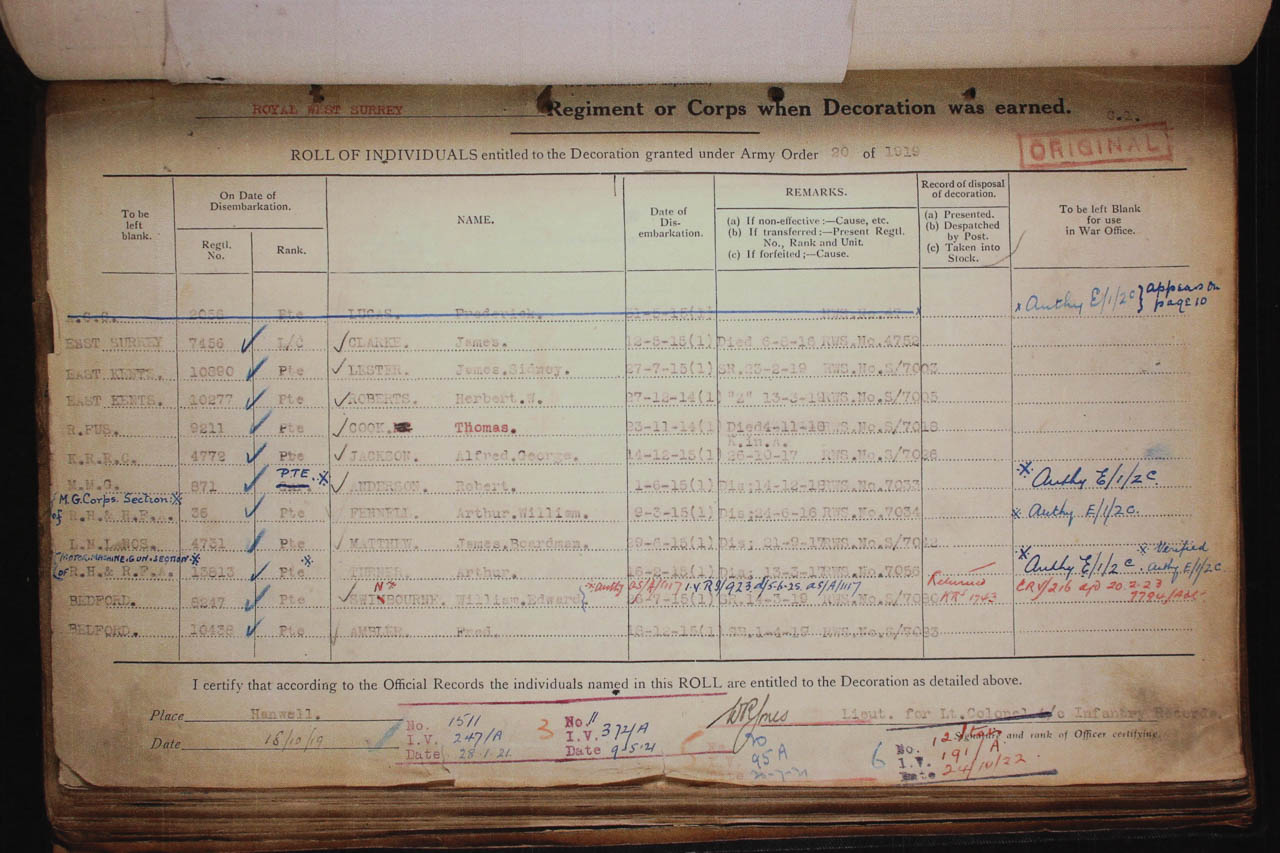 ROYAL WEST SURREY Regiment or Corps when Decoration was earned. C.2.
ORIGINAL
ROLL OF INDIVIDUALS entitled to the Decoration granted under Army Order 20 of 1919
To be left blank.
On Date of Disembarkation.
Regtl. No.
Rank.
NAME.
Date of Dis-embarkation.
REMARKS.
(a) If non-effective:—Cause, etc.
(b) If transferred:—Present Regtl. No., Rank and Unit.
(c) If forfeited;—Cause.
Record of disposal of decoration.
(a) Presented.
(b) Despatched by Post.
(c) Taken into Stock.
To be left Blank for use in War Office.
2056 Pte LUCAS. Frederick. x Authy E/1/2C } appears on page 10
EAST SURREY 7456 L/C CLARKE. James. 12-8-15(1) Died 6-8-16 RWS.No.4752
EAST KENTS. 10890 Pte LESTER. James.Sidney. 27-7-15(1) SN.23-2-19 RWS.No.S/7003
EAST KENTS. 10277 Pte ROBERTS. Herbert.W. 27-12-14(1) "Z" 13-3-19 RWS.No.S/7005
R.FUS. 9211 Pte COOK. Thomas. 23-11-14(1) Died 4-11-18 RWS.No.S/7018
K.R.R.C. 4772 Pte JACKSON. Alfred.George. 14-12-15(1) K.in.A. 26-10-17 RWS.No.S/7026
M.M.G. 871 PTE. x ANDERSON. Robert. 1-6-15(1) Dis;14-12-18 RWS.No.7033 x Authy E/1/2C
M.G.Corps. Section x
of R.H.& R.F.A. 36 Pte FENNELL. Arthur.William. 9-3-15(1) Dis;24-6-16 RWS.No.7034 x Authy E/1/2C.
L.N.LANCS. 4731 Pte MATTHEW. James.Boardman. 29-6-15(1) Dis; 21-9-17 RWS.No.
MOTOR.MACHINE.GUN.SECTION x
of R.H.& R.F.A. 15813 Pte x Arthur. 16-2-15(1) Dis; 13-3-17 RWS.No.7056 x Authy E/1/2C. x Verified Authy. E/1/2C
BEDFORD. 8247 Pte SWINBOURNE. William.Edward } x Authy 26-7-15(1) 14-3-19 RWS.No.S/7080 Returned KRs 1743 20.2.23
BEDFORD. 10438 Pte AMBLER. Fred. 18-12-15(1) SE.1-4-19 RWS.No.S/7083
I certify that according to the Official Records the individuals named in this ROLL are entitled to the Decoration as detailed above.
Place Hanwell. Lieut. for Lt.Colonel i/c Infantry Records.
Date 18/10/19 Signature and rank of Officer certifying.
No. 1511
I.V. 247/A
Date 28.1.21.
3
No. 11
I.V. 372/A
Date 9.5.21
95A
6
No.
I.V. 191/A.
Date 24/10/22.